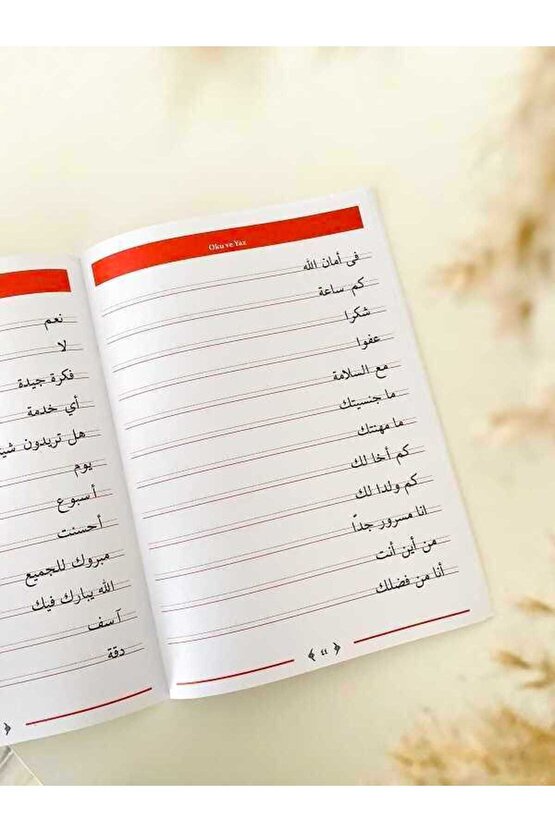 Oku ve Yaz
فى أمان الله
كم ساعة
شكرا
عفوا
مع السلامة
ما جنسيتك
ما مهنتك
كم أخا لك
كم ولدا لك
انا مسرور جداً
من أين أنت
أنا من فضلك
نعم
لا
فكرة جيدة
أي خدمة
هل تريدون
يوم
أسبوع
أحسنت
مبروك للجميع
الله يبارك فيك
آسف
دقة